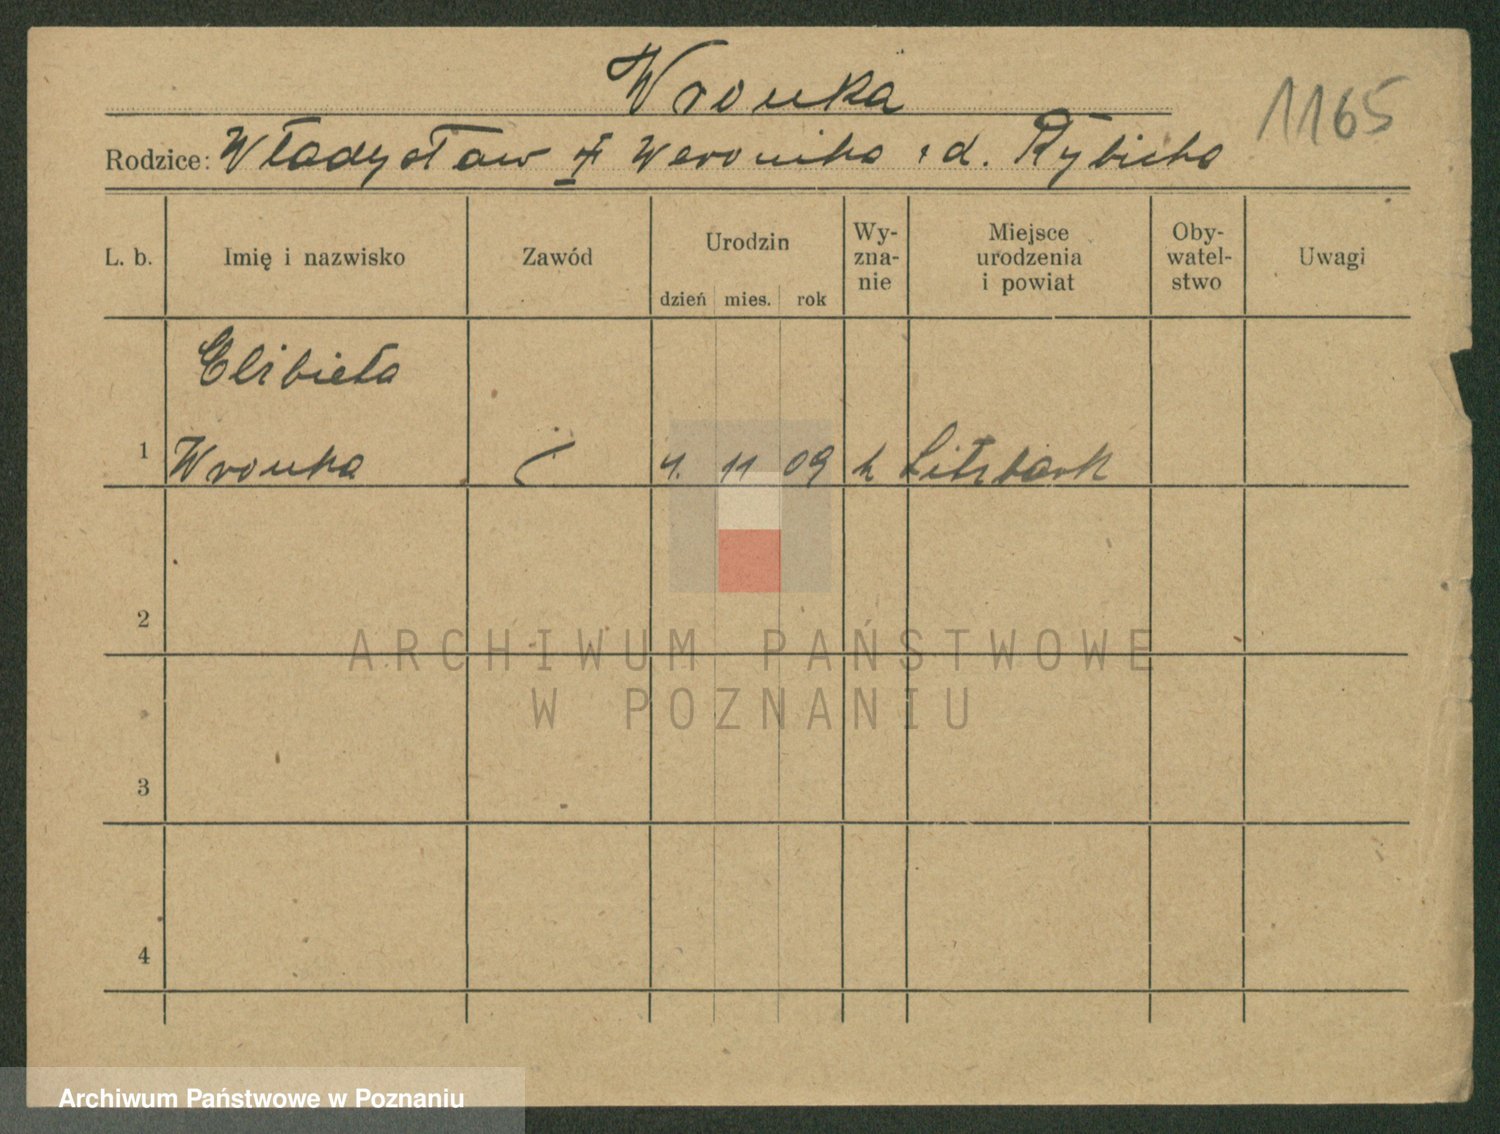 Wronka
1165
Rodzice: Władysław i Weronika z d. Rybicka
L. b.
Imię i nazwisko
Zawód
Urodzin
dzień mies. rok
Wy-
zna-
nie
Miejsce
urodzenia
i powiat
Oby-
watel-
stwo
Uwagi
Elżbieta
1 Wronka 4. 11 09 k
2
ARCHIWUM PAŃSTWOWE
W POZNANIU
3
4
Archiwum Państwowe w Poznaniu